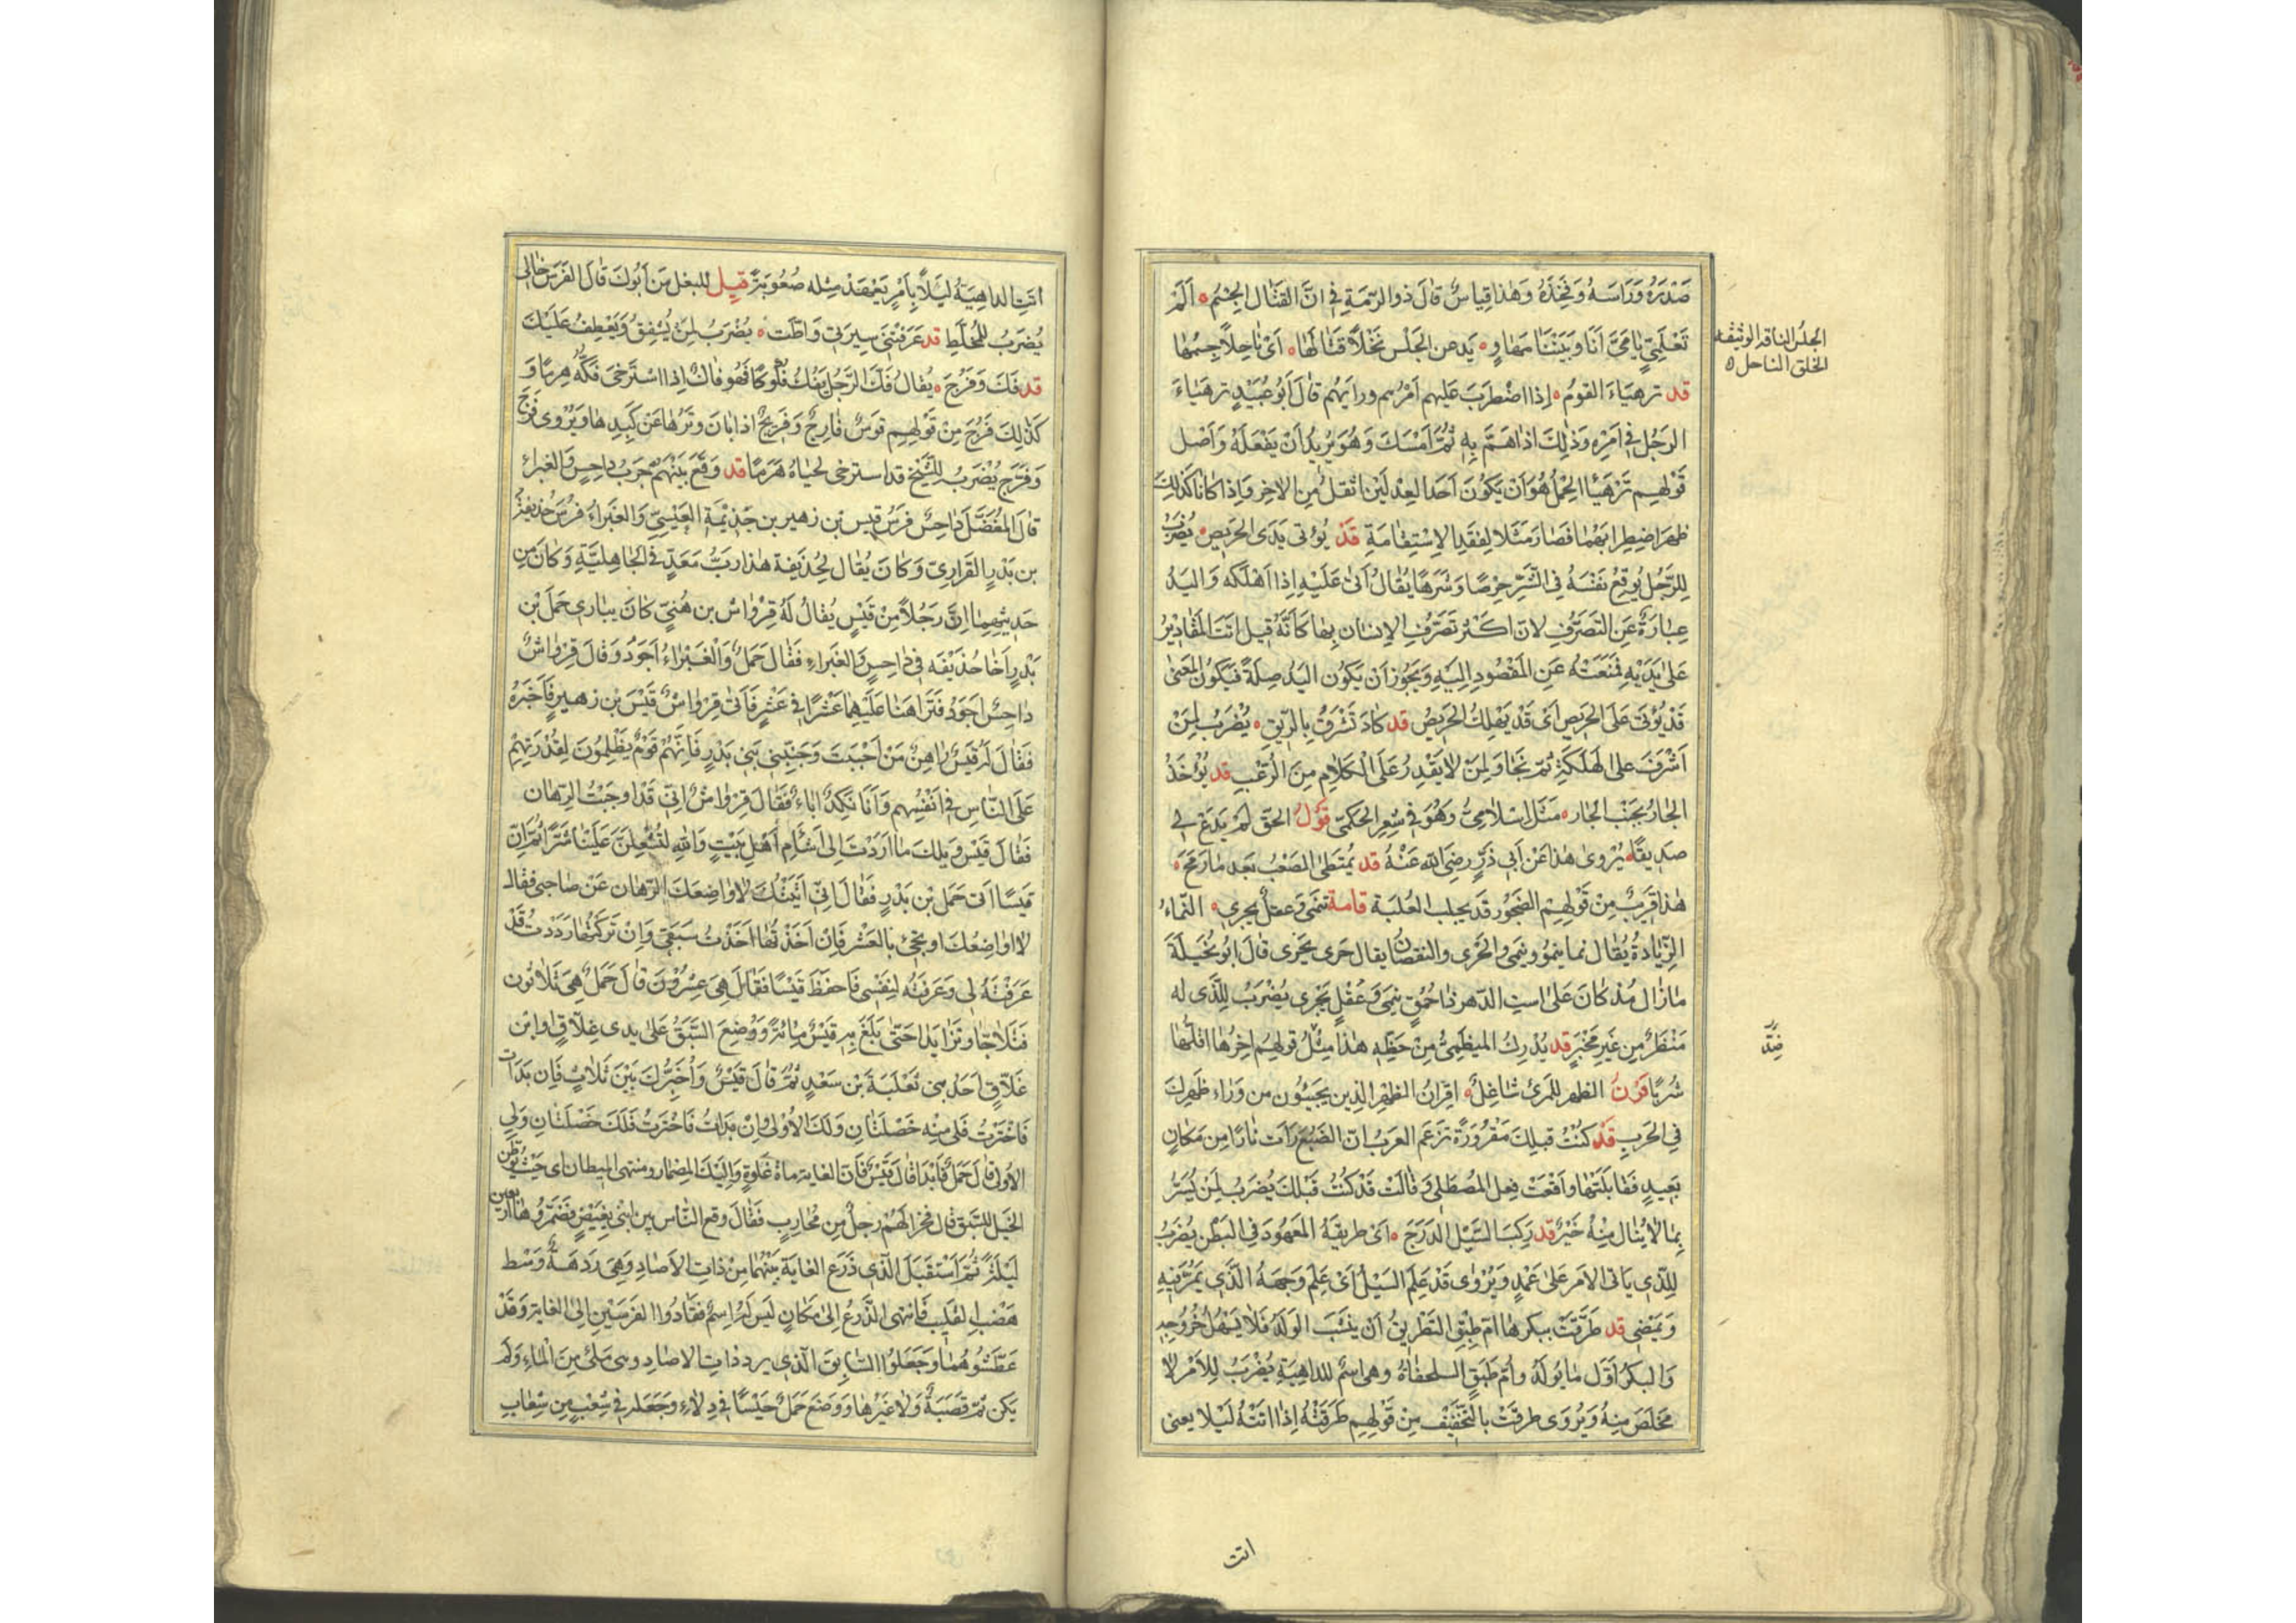 صَدْرَهُ وَرَاسَهُ وَفَخِذَهُ وَهٰذا قِياسٌ قالَ ذو الرمّةِ في انَّ القتال الجِسْمُ ه اَلَمْ
تَعْلَمِي يا مَيَّ اَنَا وَبَيْنَنَا مَهَاوٍ ه يَدعن الجَلْسَ نَحْلاً قَتَالُهَا ه اَىْ نَاحِلاً جِسْمُهَا
الجلس الناقة الوثيقة
الخلق الناحل ه
قد ترهيَاءَ القومُ ه اِذا اضْطَرَبَ عَليهم اَمْرُهم ورايهُم قالَ اَبُو عُبَيْدٍ ترهيَاءَ
الرجُل في اَمْرِه وَذٰلِكَ اذا هَمَّ بِهِ ثُمَّ اَمْسَكَ وَهُوَ يُريدُ اَنْ يَفْعَلَهُ وَاَصْل
قَوْلهِم تَرَهْيَا الحِمْلُ هُوَ اَنْ يَكُونَ اَحَدُ العِدْلَيْن اثقلَ مِن الاخِرِ وَاِذا كانَا كَذٰلِكَ
ظهَرَ اضطِرابُهُمَا فَصَارَ مَثَلا لِفقدِ الاِسْتِقامَةِ قَدْ يُؤتى يَدَى الحَرِيص ه يُضرَبُ
للرَّجُل يُوقعُ نفسَهُ في الشَّرِّ حِرْصًا وَشَرَهًا يُقالُ اَتىٰ عَلَيْهِ اِذا اَهْلَكه وَاليَدُ
عِبَارَةٌ عَنِ التصَرُّفِ لانّ اكثرَ تَصَرُّفِ الاِنسَانِ بِهَا كَاَنَّهُ قِيل اتَتِ المقَادِيرُ
عَلىٰ يَدَيْهِ فمنَعَتْهُ عَنِ المَقْصُودِ اِلَيْهِ وَيَجُوز اَنْ يَكُون اليَدُ صِلَةً فيَكُونُ المعْنىٰ
قَدْ يُؤتَى عَلَى الحَرِيصِ اَىْ قَدْ يَهْلِكُ الحَرِيصُ قد كادَ تَشْرَقُ بِالرّيق ه يُضْرَبُ لِمَنْ
اَشْرَفَ على الهَلَكَةِ ثمّ نَجَا وَلِمَنْ لا يَقْدِرُ عَلَى الْكَلاٰمِ مِنَ الرُعْبِ قد يُؤخَذُ
الجَارُ بِجَنْبِ الجَارِ ه مَثَل اسْلاٰمِيٌّ وَهُوَ فى شِعْرِ الحكمىّ قَوْلُ الحَقِّ لَمْ يَدَعْ لى
صَدِيقًا ه يُرْوىٰ هذا عَنْ اَبى ذَرٍّ رضِىَ اللّه عَنْهُ قد يُمتَطىٰ الصَعْبُ بَعدَ مَا رَمَحَ ه
هذا قريبٌ مِنْ قَوْلِهم الضجُور قد يحلب العُلبَة قامة تنمى وَعقلٌ يحرى ه النماءُ
الزّيادَةُ يُقال نما ينمُو وينمى والحَرى والنقصانُ يقال حَرى يَحْرى قالَ ابُو نُخَيلَةَ
مَا زال مُذ كانَ عَلىٰ استِ الدّهرِ ذا حُمُقٍ يَنمىَ وَعُقْلٍ يَحْرى يُضرَبُ لِلذى له
مَنْظَرٌ مِن غَيرِ مَخْبَرٍ قد يُدْرِكُ المبْطِئُ مِنْ حَظِّهِ هٰذا مِثْلُ قولهِم اخِرُهَا اقلّهَا
شُربًا قَرْنُ الظهرِ للمَرىءِ شاغِلٌ ه اقرانُ الظهْرِ الذِين يَجيئون من وَراءِ ظَهْرِكَ
في الحَربِ قَدْ كُنْتُ قبلِكَ مَقرُورَةً تزعَم العَربُ انّ الضبُعَ رَاَت نارًا مِن مَكانٍ
بَعِيدٍ فقابَلَتْهَا وَاقْعَتْ فِعل المُصطَلِى وَقالَتْ قَدْ كُنْتُ قَبْلكَ يُضرَبُ لِمَن يُسَرُّ
بِما لا يُنَال مِنْهُ خَيْرٌ قد رَكِبَ السَّيْلُ الدَرَجَ ه اَىْ طريقَهُ المَعهُودَ فى البَطن يُضرَبُ
لِلّذى ياتى الاَمر عَلىٰ عَمْدٍ وَيُرْوىٰ قَدْ عَلِمَ السَيْلُ اَىْ عَلِمَ وَجهَهُ الَّذي يَمُرّ فِيهِ
وَيَمْضِى قد طَرَّقَتْ ببكرها امّ طبقٍ التطريقُ اَن ينشَبَ الوَلَدُ فَلاٰ يَسْهُلُ خُرُوجِهِ
وَالبكرُ اَوّل ما يُولَد وامّ طبَقٍ السلحفاةُ وهى اسْمٌ للداهِيَةِ يُضْرَبُ لِلاَمْرِ لاٰ
مَخلَصَ مِنهُ وَيُرْوَى طرقَتْ بالتخفِيْف مِنْ قَوْلِهِم طَرَقَتْهُ اِذا اتَتْهُ لَيْلا يعنى
ضدّ
اتت
اتتِ الداهِيَةُ لَيْلاً بِاَمْرٍ يَعْهَدْ مِثله صُعُوبَةً قيل للبغل مَن اَبُوكَ قالَ الفَرَسُ خالى
يُضرَبُ للمُخَلِّطِ قد عَرَفتْنِى سِيرَتِى وَاطّت ه يُضْرَبُ لِمَنْ يُشفِقُ وَيَعْطِفُ عَلَيْكَ
قد فَكَّ وَفَرَجَ ه يُقالُ فَكَّ الرَّجُلُ يَفُكُّ فكُوكًا فَهُوَ فاكٌّ اِذا اسْتَرْخىَ فَكُّهُ هِرمًا وَ
كَذٰلِكَ فَرَجَ مِنْ قَوْلِهِم قَوسٌ فارِجٌ وَفَرِيجٌ اذا بَان وَتَرُهَا عَنْ كَبِدِهَا وَيُرْوى فَرَجَ
وَفَرَّجَ يُضْرَبُ للشَّيْخ قد استرخى لحيَاهُ هَرَمًا قد وَقَعَ بَيْنَهُم حَرَبُ داحِسٍ وَالغبراءِ
قالَ المُفَضَّل دَاحِسٌ فَرَسُ قيس بْن زهير بن جَذِيْمَةِ العَبْسِيّ وَالغَبْراءُ فَرسُ حُذيفَةَ
بن بَدْرٍ الفَزارِىّ وَكانَ يُقال لِحُذَيفة هٰذا رَبُّ مَعَدٍّ فى الجَاهِليَّةِ وَكانَ مِن
حَدِيثِهِمَا اِنَّ رَجُلاً مِنْ قَيْسٍ يُقالُ لَهُ قِرْوَاشُ بن هُنىّ كانَ يبَارى حَمَلَ بْن
بَدْرٍ اَخا حُذيفَه في دَاحِسٍ وَالغَبراءِ فقَالَ حَمَلٌ وَالْغَبْرَاءُ اَجوَدُ وَقالَ قِرْوَاشٌ
داحِسٌ اجوَدُ فتَراهَنَا عَلَيْهِما عَشْرًا فى عَشْرٍ فَاَتىٰ قِرْوَاشٌ قَيْسَ بْن زهَيرٍ فَاَخبَرهُ
فقالَ لَهُ قَيْسٌ رَاهِنْ مَنْ اَحْبَبْتَ وَجَنِّبْنِى بَنِى بَدْرٍ فَاِنَّهُمْ قَوْمٌ يَظْلِمُونَ لِقُدْرَتِهِمْ
عَلَى النَّاسِ فى اَنْفُسِهِم وَاَنَا نَكِدٌ اباءٌ فَقالَ قِرْوَاشٌ اِنِّى قَدْ اوجَبْتُ الرِهَانَ
فقَالَ قَيْس وَيلك مَا اَرَدْتَ اِلىٰ اشْأَمِ اَهْلِ بَيْتٍ وَاللّٰهِ لَتُشْعِلَنَّ عَلَيْنَا شَرًّا ثُمَّ اِنّ
قَيسًا اَتى حَمَل بْن بَدْرٍ فقَالَ اِنّي اَتَيْتُكَ لاُوَاضِعَكَ الرّهَان عَنْ صَاحِبى فقالَ
لا اوَاضِعُكَ او تجئَ بالعَشْرِ فَاِنْ اَخَذْتُهَا اخَذْتُ سَبَقِى وَاِنْ تَرَكتُهَا رَدَدْتُ قَدْ
عَرَفْتَهُ لِى وَعَرَفْتُه لِنَفْسِى فَاحفَظَ قَيْسًا فقَالَ هِىَ عِشرُوْنَ قالَ حَمَلٌ هِىَ ثَلاثون
فَتَلاٰجّا وتَزَايَدا حَتّى بَلَغَ بِه قَيْسٌ مِائةً وَوُضِعَ السَّبَقُ عَلىٰ يدى غلاّقٍ او ابْن
غَلاّقٍ اَحَدُ بَنى ثَعْلَبَةَ بْن سَعْدٍ ثُمَّ قَالَ قَيْسٌ وَأُخَيِّرُكَ بَيْنَ ثَلاثٍ فَاِن بَدَأتَ
فَاخْتَرْتَ فَلى مِنْه خَصْلَتَانِ وَلَكَ الاُوْلىٰ وَاِنْ بَدَأتُ فَاخْتَرْتُ فَلَكَ خَصْلَتَانِ وَلى
الاُولى قالَ حَمَلٌ فَابْدَا قالَ قَيْسٌ فَاِنّ الغاية مِاةُ غَلْوَةٍ وَاِلَيْكَ المِضمَار ومنتهى الميطان اى حَيْثُ يُوَطَّن
الخَيل للسَبَق قال فخرَ لَهُمْ رَجلٌ مِن مُحارِبٍ فقَالَ وقع النَّاس بين ابْنَى بغِيضٍ فضَمّرُوهَا اربعين
لَيْلةً ثُمّ استَقْبَلَ الّذى ذَرَعَ الغايَة بَيْنَهُمَا مِنْ ذاتِ الاَصَادِ وَهِىَ رَدْهَةٌ وَسْط
هَضْبِ القَلِيْب فَانتهى الذَرعُ اِلىٰ مَكانٍ لَيْسَ لَهُ اسِمٌ فقادُوا الفَرَسَيْن اِلى الغايةِ وَقَدْ
عَطَّشُوهُمَا وَجَعَلُوا السّابِقَ الّذى يرد ذاتِ الاصَادِ وهى مَلأى مِنَ المَاءِ وَلَم
يَكن ثمّ قَصَبَةٌ وَلا غَيْرُهَا وَوَضَعَ حَمَلٌ حَيْسًا في دِلاءٍ وَجَعَله فى شِعْبٍ مِن شِعَابِ